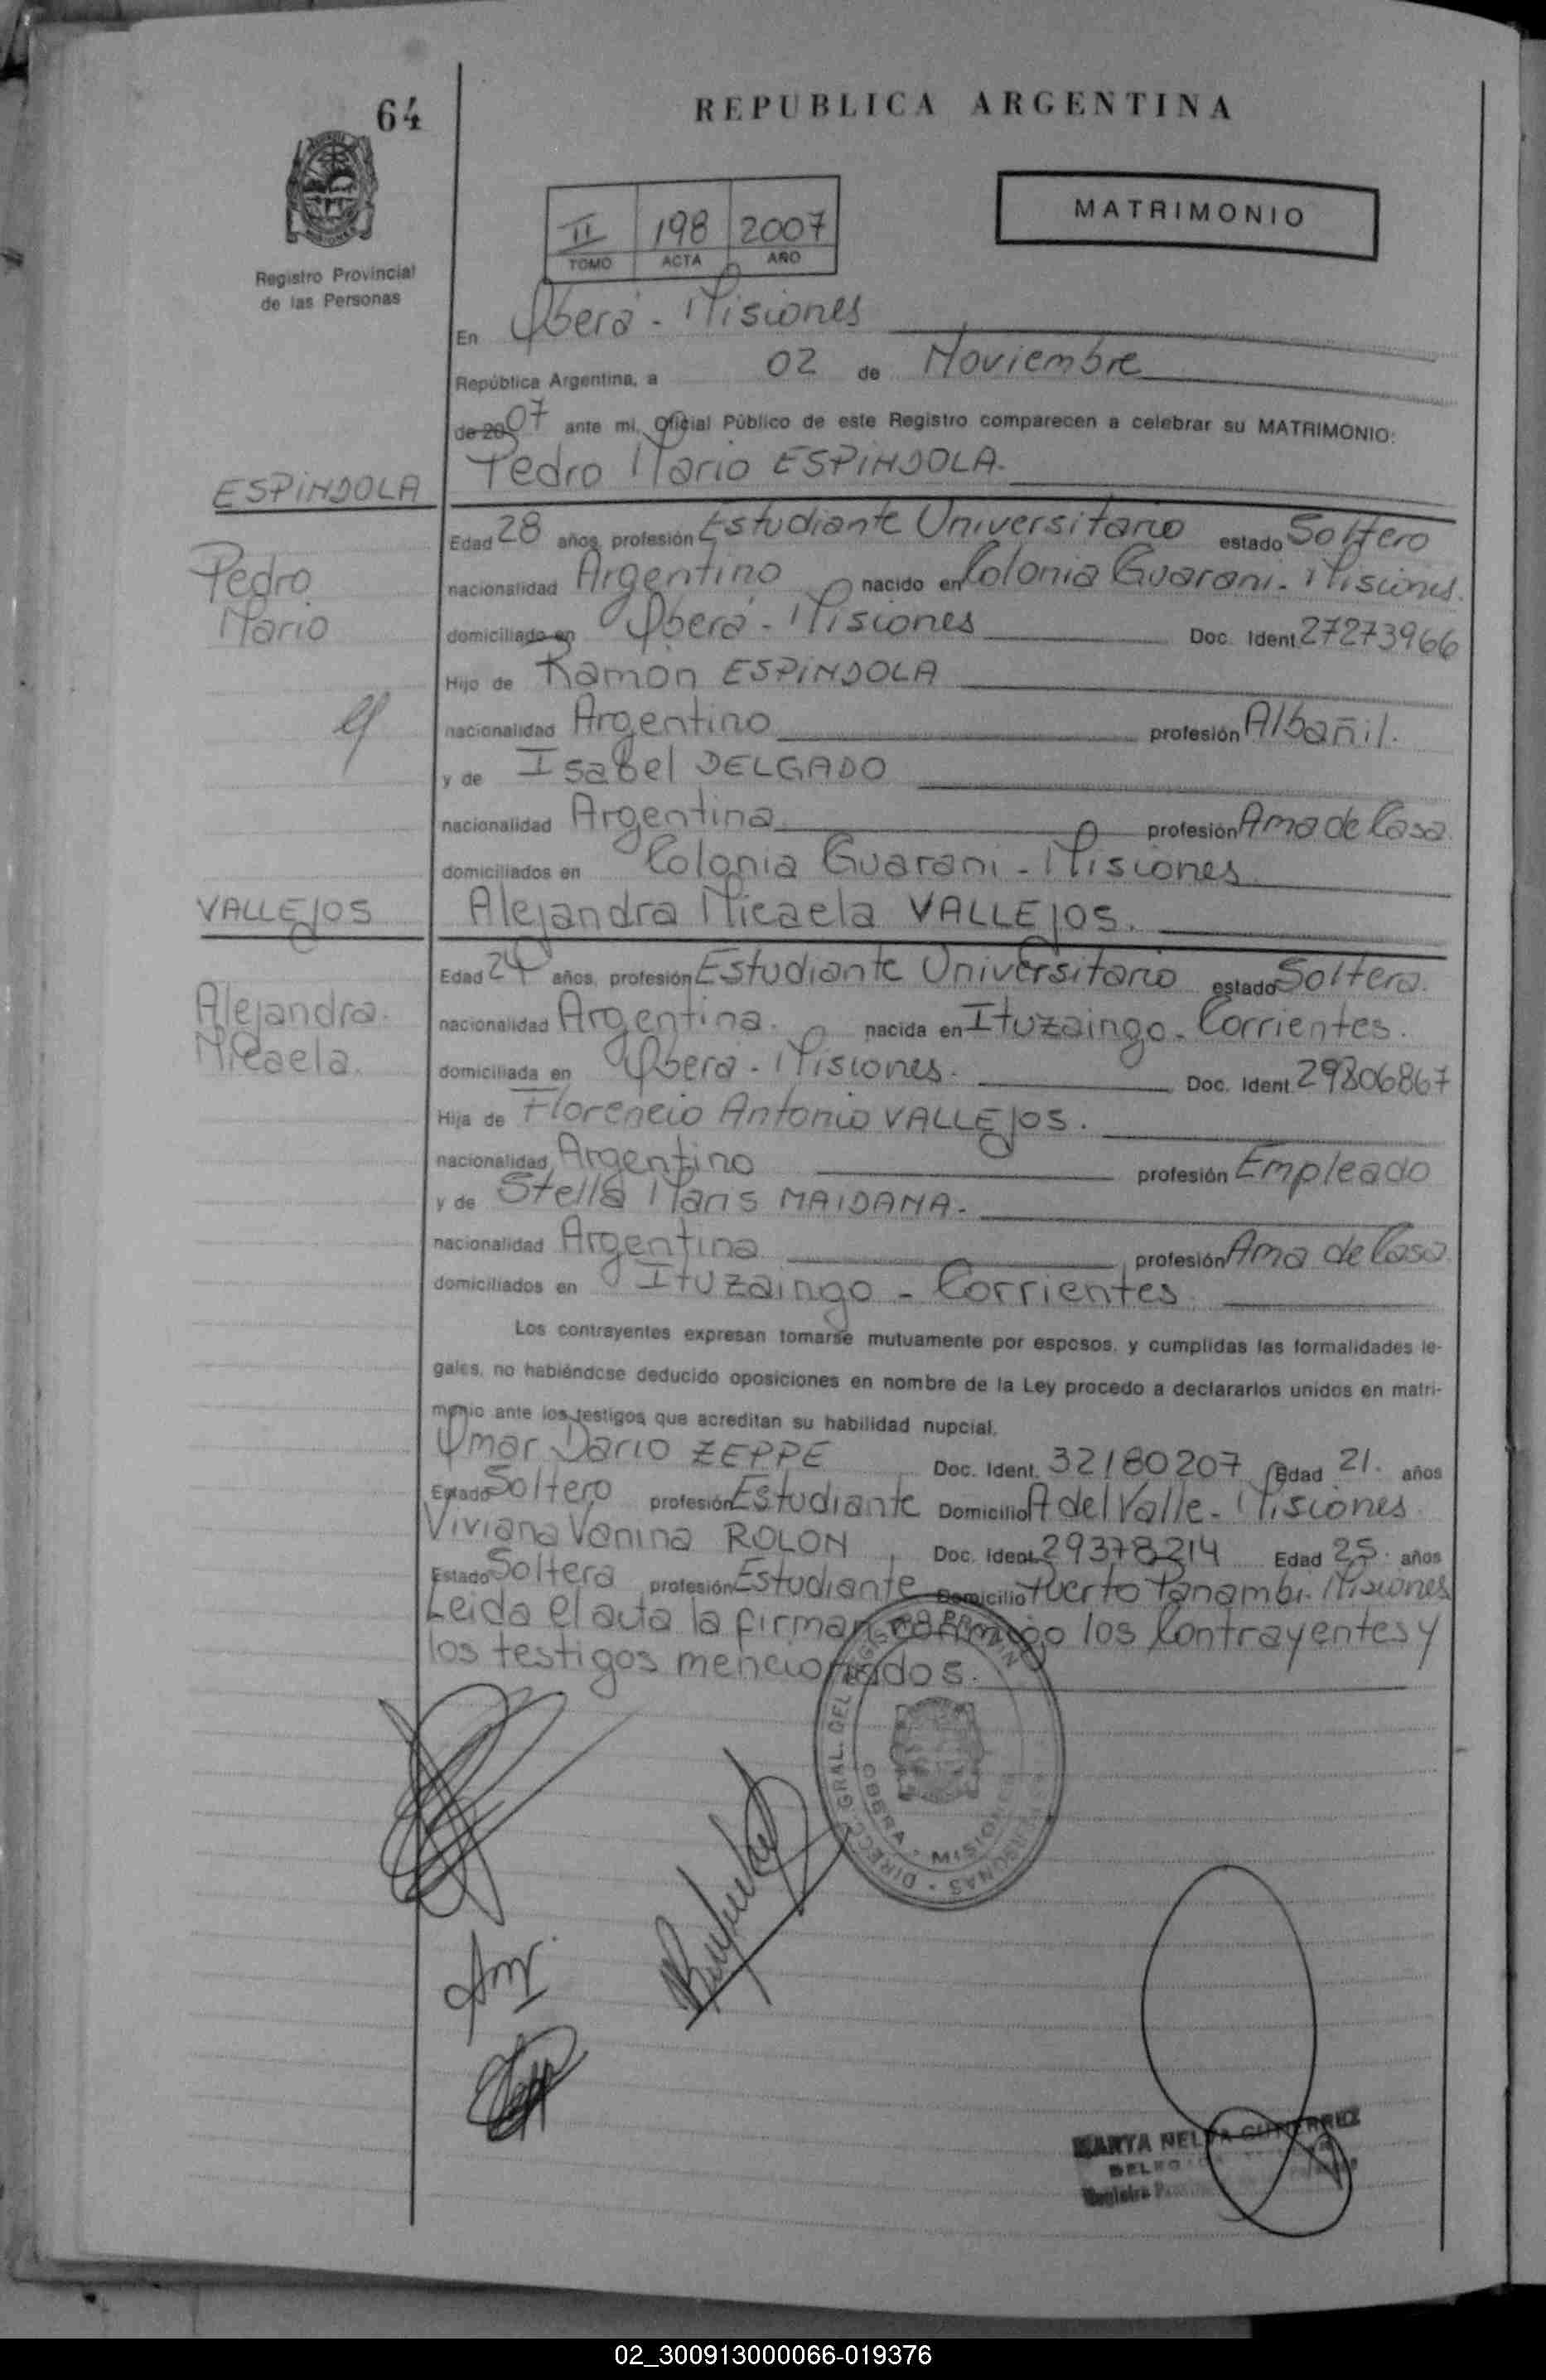 64
REPUBLICA ARGENTINA
MATRIMONIO
II 198 2007
TOMO ACTA AÑO
Registro Provincial
de las Personas
En Oberá - Misiones
República Argentina, a 02 de Noviembre
de 2007 ante mi, Oficial Público de este Registro comparecen a celebrar su MATRIMONIO:
Pedro Mario ESPINDOLA.
ESPINDOLA
Edad 28 años, profesión Estudiante Universitario estado Soltero
Pedro
nacionalidad Argentino nacido en Colonia Guarani - Misiones.
Mario
domiciliado en Oberá - Misiones Doc. Ident. 27273966
Hijo de Ramón ESPINDOLA
nacionalidad Argentino profesión Albañil.
y de Isabel DELGADO
nacionalidad Argentina profesión Ama de Casa.
domiciliados en Colonia Guarani - Misiones
VALLEJOS
Alejandra Micaela VALLEJOS.
Edad 24 años, profesión Estudiante Universitario estado Soltera.
Alejandra.
nacionalidad Argentina. nacida en Ituzaingo - Corrientes.
Micaela.
domiciliada en Oberá - Misiones. Doc. Ident. 29806867
Hija de Florencio Antonio VALLEJOS.
nacionalidad Argentino profesión Empleado
y de Stella Maris MAIDANA.
nacionalidad Argentina profesión Ama de Casa.
domiciliados en Ituzaingo - Corrientes.
Los contrayentes expresan tomarse mutuamente por esposos, y cumplidas las formalidades le-
gales, no habiéndose deducido oposiciones en nombre de la Ley procedo a declararlos unidos en matri-
monio ante los testigos que acreditan su habilidad nupcial.
Omar Dario ZEPPE Doc. Ident. 32180207 Edad 21. años
Estado Soltero profesión Estudiante Domicilio A del Valle - Misiones.
Viviana Vanina ROLON Doc. Ident. 29378214 Edad 25. años
Estado Soltera profesión Estudiante Domicilio Puerto Panambi. Misiones
Leida el acta la firman conmigo los Contrayentes y
los testigos mencionados.
DIRECC. GRAL. DEL REGISTRO
OBERA - MISIONES
MARTA NELDA GUTIERREZ
Registro
02_300913000066-019376